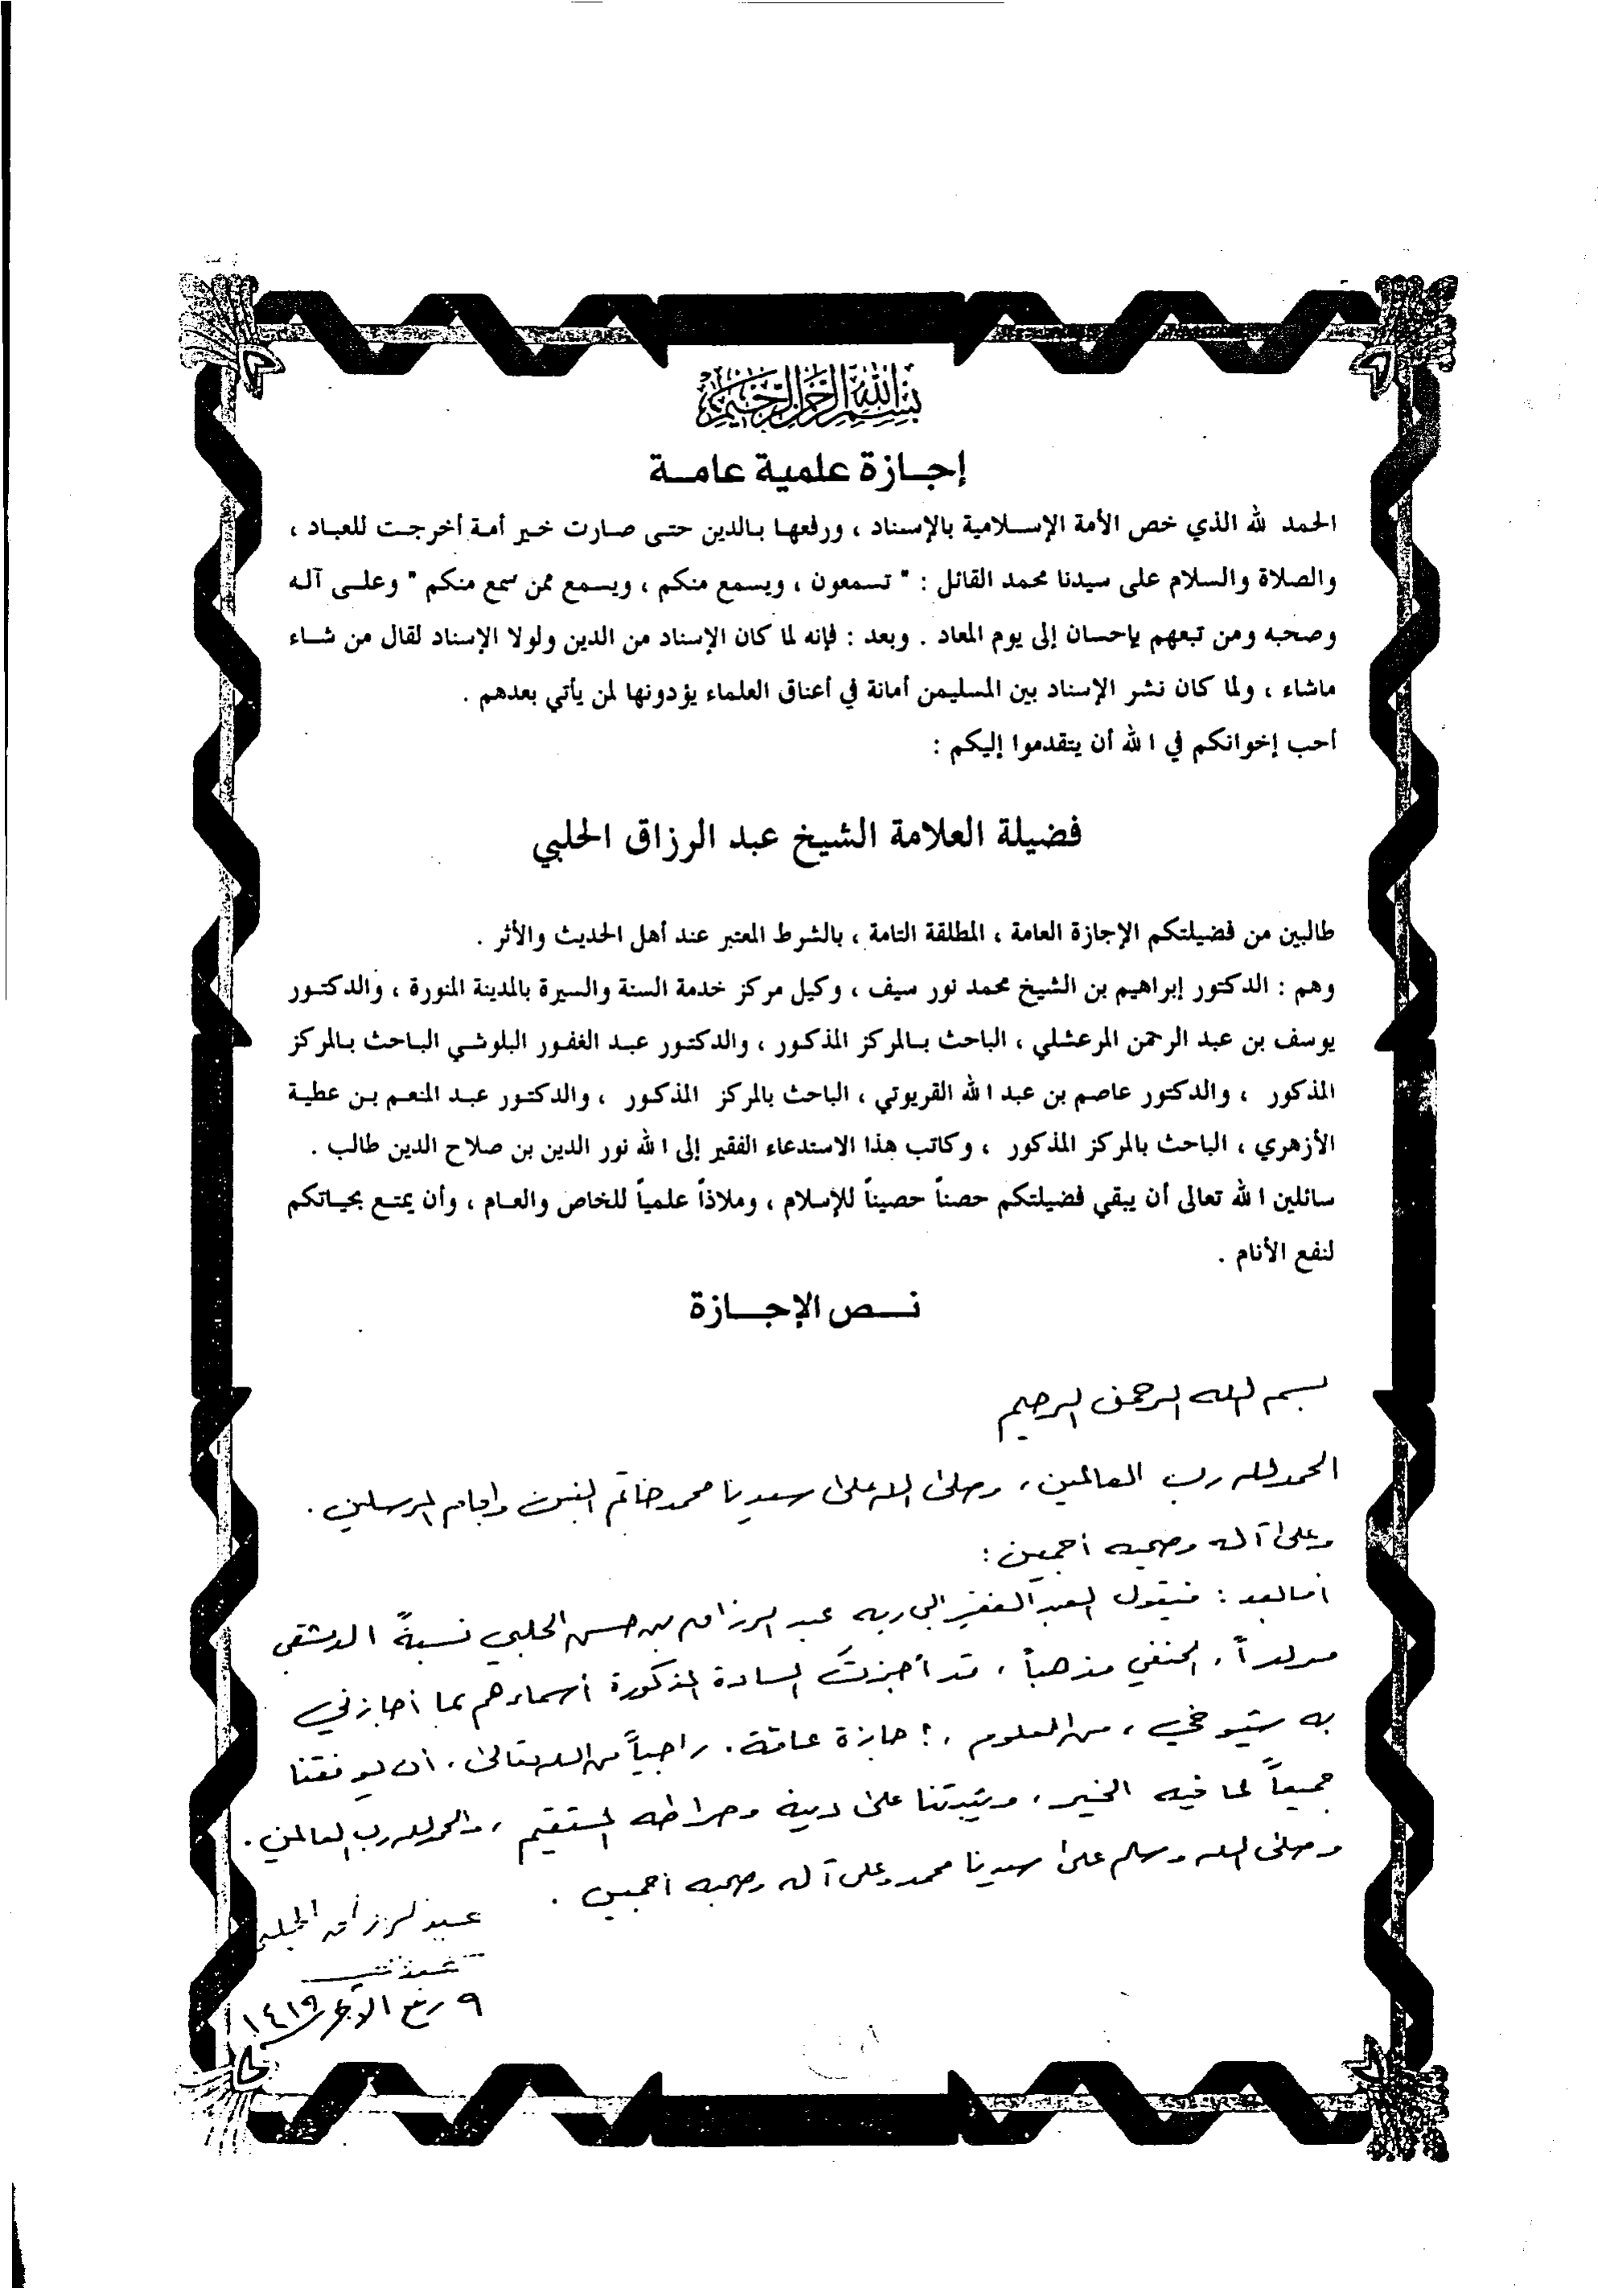 بسم الله الرحمن الرحيم
إجازة علمية عامة
الحمد لله الذي خص الأمة الإسلامية بالإسناد ، ورفعها بالدين حتى صارت خير أمة أخرجت للعباد ،
والصلاة والسلام على سيدنا محمد القائل : " تسمعون ، ويسمع منكم ، ويسمع ممن سمع منكم " وعلى آله
وصحبه ومن تبعهم بإحسان إلى يوم المعاد . وبعد : فإنه لما كان الإسناد من الدين ولولا الإسناد لقال من شاء
ماشاء ، ولما كان نشر الإسناد بين المسليمن أمانة في أعناق العلماء يؤدونها لمن يأتي بعدهم .
أحب إخوانكم في الله أن يتقدموا إليكم :
فضيلة العلامة الشيخ عبد الرزاق الحلبي
طالبين من فضيلتكم الإجازة العامة ، المطلقة التامة ، بالشرط المعتبر عند أهل الحديث والأثر .
وهم : الدكتور إبراهيم بن الشيخ محمد نور سيف ، وكيل مركز خدمة السنة والسيرة بالمدينة المنورة ، والدكتور
يوسف بن عبد الرحمن المرعشلي ، الباحث بالمركز المذكور ، والدكتور عبد الغفور البلوشي الباحث بالمركز
المذكور ، والدكتور عاصم بن عبد الله القريوتي ، الباحث بالمركز المذكور ، والدكتور عبد المنعم بن عطية
الأزهري ، الباحث بالمركز المذكور ، وكاتب هذا الاستدعاء الفقير إلى الله نور الدين بن صلاح الدين طالب .
سائلين الله تعالى أن يبقي فضيلتكم حصناً حصيناً للإسلام ، وملاذاً علمياً للخاص والعام ، وأن يمتع بحياتكم
لنفع الأنام .
نص الإجازة
بسم الله الرحمن الرحيم
الحمد لله رب العالمين ، وصلى الله على سيدنا محمد خاتم النبيين وإمام المرسلين .
وعلى آله وصحبه أجمعين :
أما بعد : فيقول العبد الفقير إلى ربه عبد الرزاق بن حسن الحلبي نسبةً الدمشقي
مولداً ، الحنفي مذهباً ، قد أجزتُ السادة المذكورة أسماءهم بما أجازني
به شيوخي ، من العلوم ، إجازة عامّة . راجياً من الله تعالى ، أن يوفقنا
جميعاً لما فيه الخير ، ويثبتنا على دينه وصراطه المستقيم ، والحمد لله رب العالمين .
وصلى الله وسلم على سيدنا محمد وعلى آله وصحبه أجمعين .
عبد الرزاق الحلبي
٩ ربيع الآخر ١٤١٩